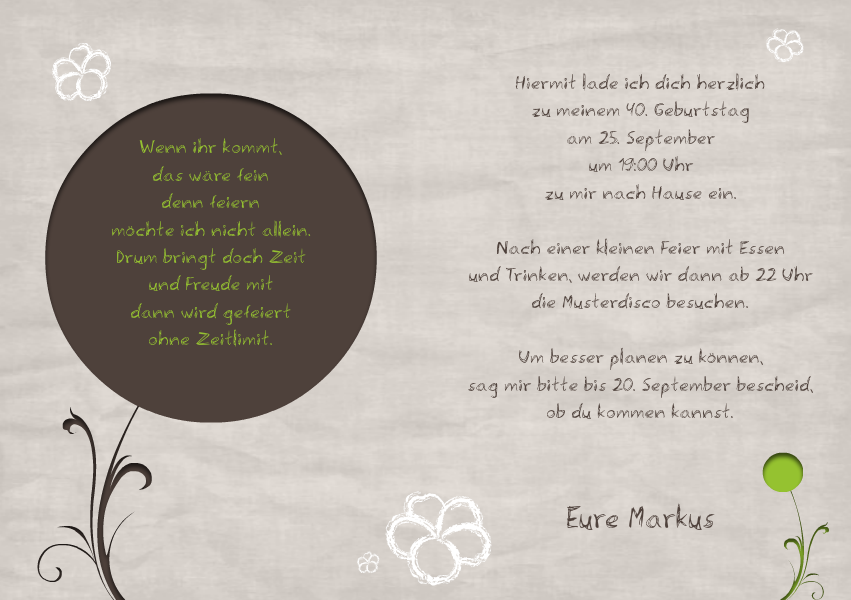 Wenn ihr kommt,
das wäre fein
denn feiern
möchte ich nicht allein.
Drum bringt doch Zeit
und Freude mit
dann wird gefeiert
ohne Zeitlimit.
Hiermit lade ich dich herzlich
zu meinem 40. Geburtstag
am 25. September
um 19:00 Uhr
zu mir nach Hause ein.
Nach einer kleinen Feier mit Essen
und Trinken, werden wir dann ab 22 Uhr
die Musterdisco besuchen.
Um besser planen zu können,
sag mir bitte bis 20. September bescheid,
ob du kommen kannst.
Eure Markus